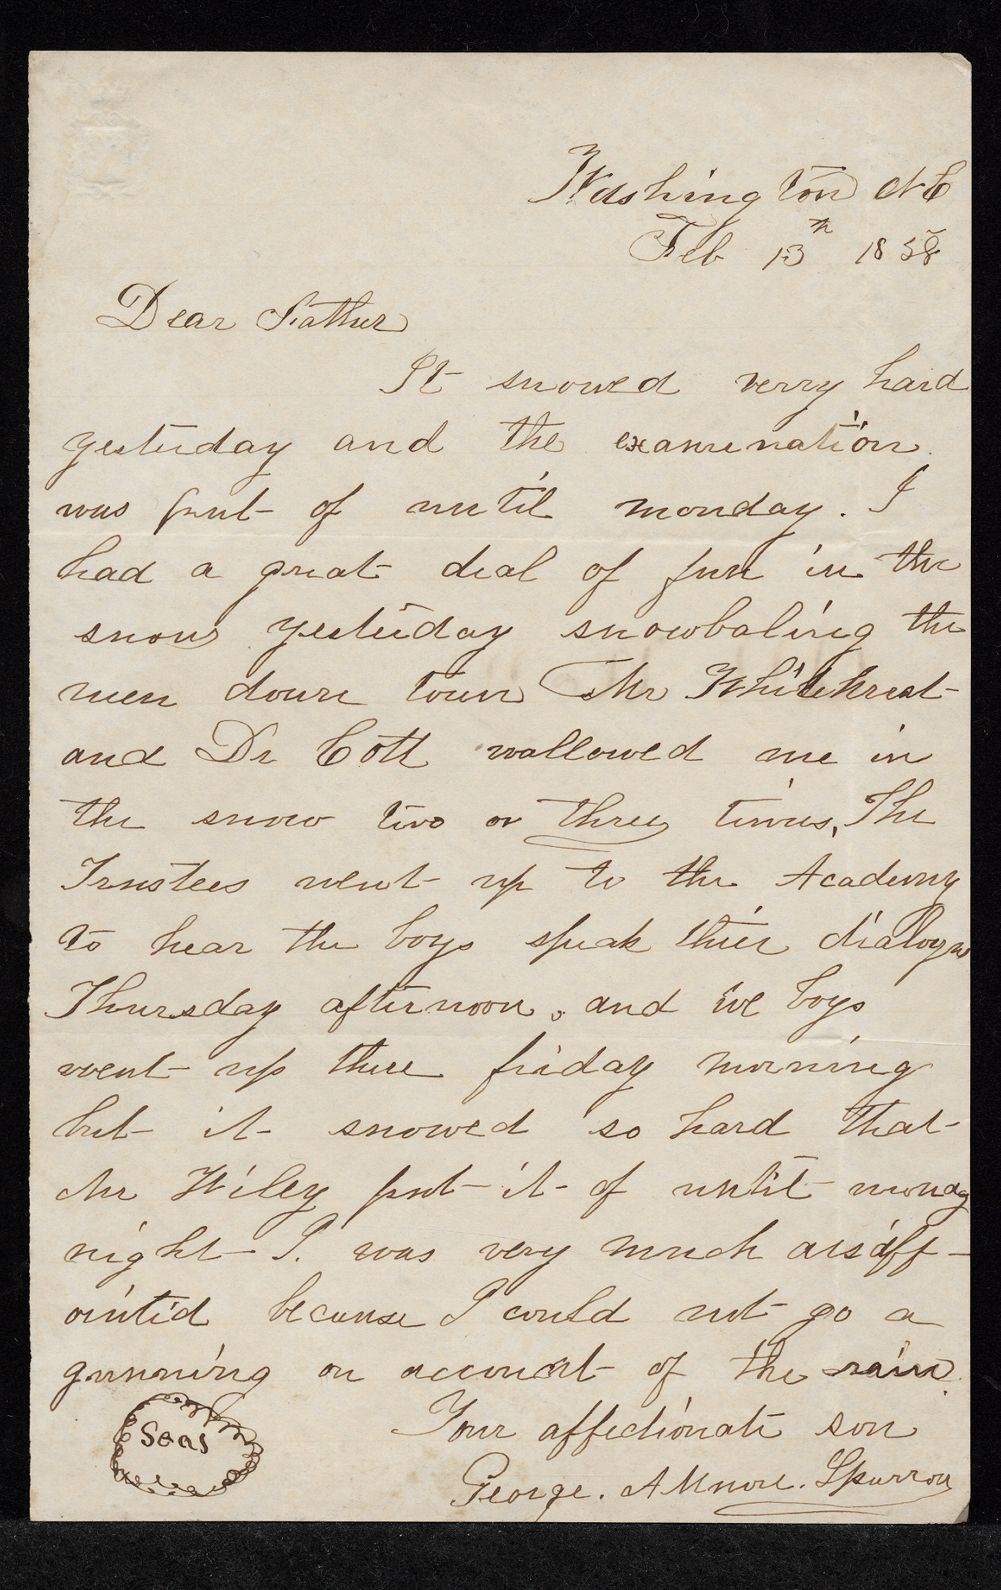 Washington N C
Feb 13th 1858
Dear Father
It snowed verry hard
yesterday and the examination
was put of until monday. I
had a great deal of fun in the
snow yesterday snowbaling the
men down town Mr Whitehrest
and Dr Cott wallowed me in
the snow two or three times, The
Trustees went up to the Academy
to hear the boys speak thier dialogu
Thursday afternoon. and we boys
went up there friday morning
but it snowed so hard that
Mr Wiley put it of until monday
night I. was very much disapp-
ointed because I could not go a
gunning on account of the rain.
Your affectionate son
George. A Sparrow
Seal